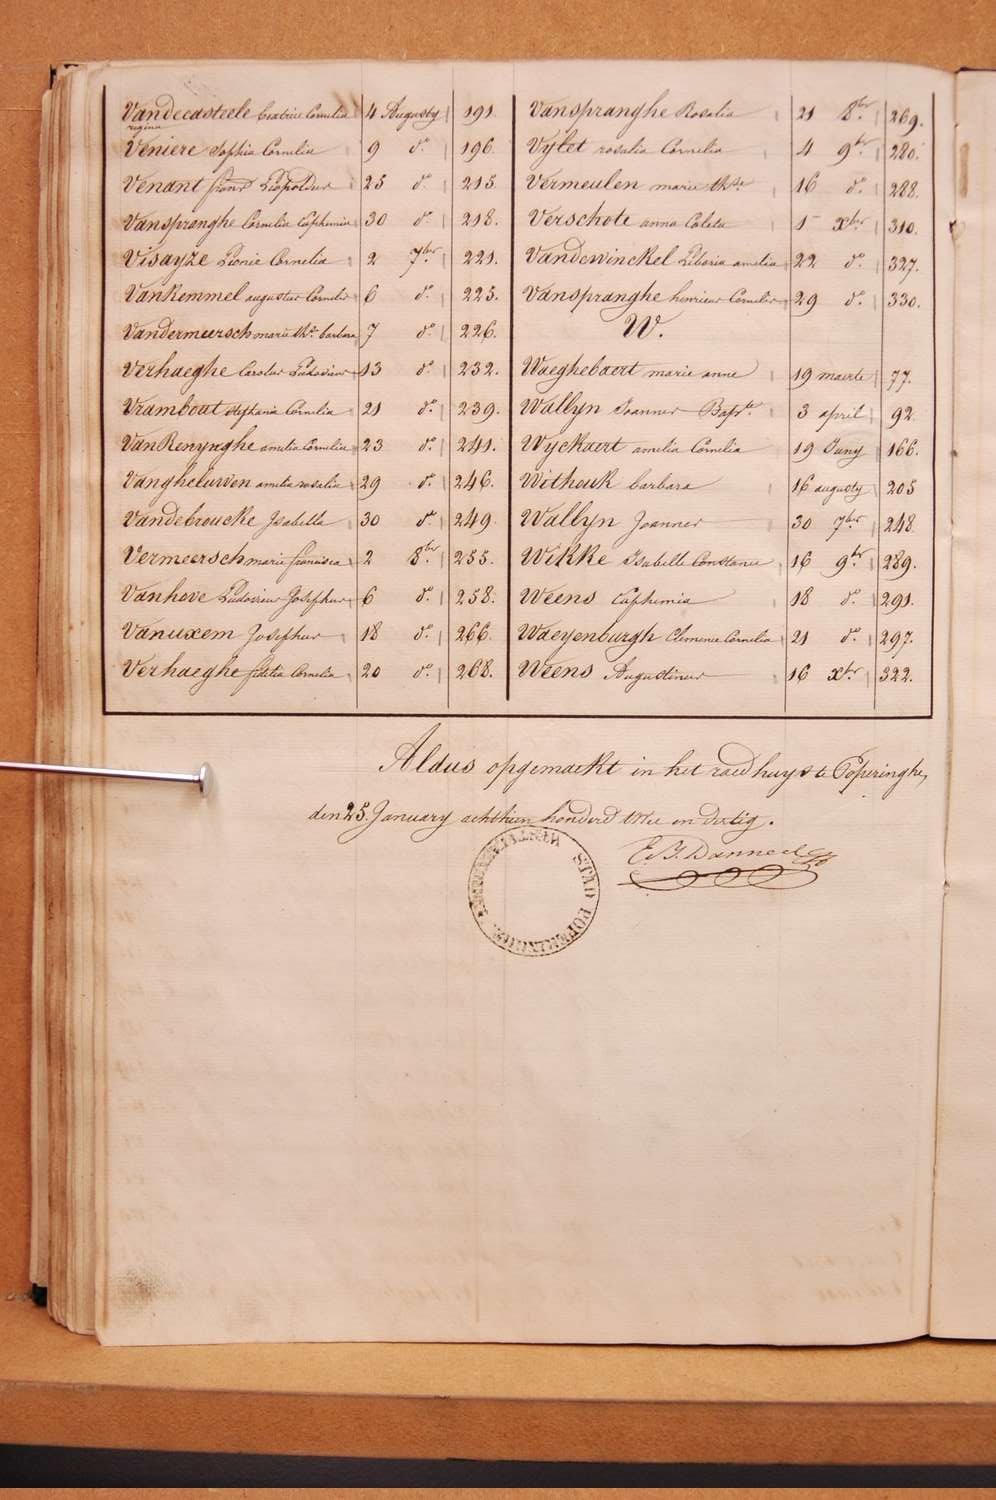 Vandecasteele beatrix Cornelia 4 Augusty 191.
regina
Veniere Sophia Cornelia 9 do. 196.
Venant franc Leopoldus 25 do. 215.
Vanspranghe Cornelia Euphemia 30 do. 218.
Visayze Leonie Cornelia 2 7ber. 221.
VanKemmel augustus Cornelis 6 do. 225.
Vandermeersch marie ths. barbara 7 do. 226.
Verhaeghe Carolus Ludovicus 13 do. 232.
Vrambout stephania Cornelia 21 do. 239.
VanRenynghe amelia Cornelia 23 do. 241.
Vanghelurven amelia rosalia 29 do. 246.
Vandebroucke Isabella 30 do. 249.
Vermeersch marie francisca 2 8ber. 255.
Vanhove Ludovicus Josephus 6 do. 258.
Vanuxem Josephus 18 do. 266.
Verhaeghe fidelia Cornelia 20 do. 268.
Vanspranghe Rosalia 21 8ber. 269.
Vylet rosalia Cornelia 4 9ber. 280.
Vermeulen marie thse 16 do. 288.
Verschote anna Coleta 1 xber. 310.
Vandewinckel Liboria amelia 22 do. 327.
Vanspranghe henricus Cornelis 29 do. 330.
W.
Waeghebaert marie anne 19 maerte 77.
Wallyn Joannes Bapte. 3 april 92.
Wyckaert amelia Cornelia 19 Juny 166.
Withouk barbara 16 augusty 205
Wallyn Joannes 30 7ber 248.
Wikke Isabelle Constance 16 9ber. 289.
Weens Euphemia 18 do. 291.
Waeyenburgh Clemence Cornelia 21 do. 297.
Weens Augustinus 16 xber. 322.
Aldus opgemaekt in het raedhuys te Poperinghe,
den 25. January achthien honderd twee en dertig.
STAD POPERINGHE.